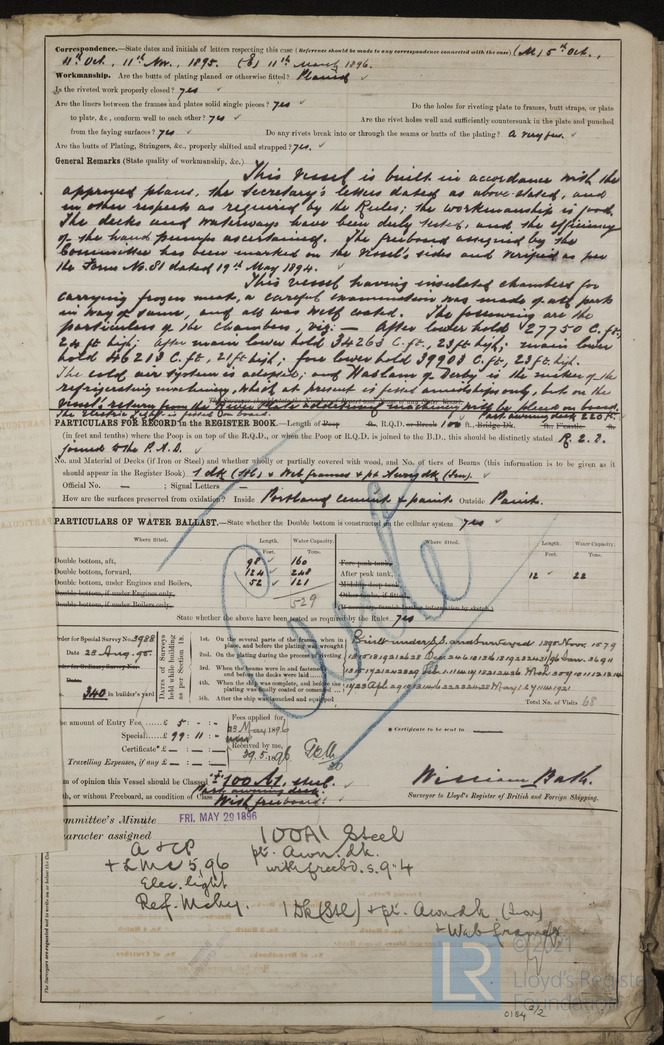 Correspondence.—State dates and initials of letters respecting this case (Reference should be made to any correspondence connected with the case) (M) 5th Oct.,
11th Oct., 11th Nov., 1895. (E) 11th March 1896.
Workmanship. Are the butts of plating planed or otherwise fitted? Planed
Is the riveted work properly closed? yes
Are the liners between the frames and plates solid single pieces? yes Do the holes for riveting plate to frames, butt straps, or plate
to plate, &c., conform well to each other? yes Are the rivet holes well and sufficiently countersunk in the plate and punched
from the faying surfaces? yes Do any rivets break into or through the seams or butts of the plating? a very few.
Are the butts of Plating, Stringers, &c., properly shifted and strapped? yes.
General Remarks (State quality of workmanship, &c.)
This vessel is built in accordance with the
approved plans, the Secretary's letters dated as above stated, and
in other respects as required by the Rules; the workmanship is good.
The decks and waterways have been duly tested, and the efficiency
of the hand pumps ascertained. The freeboard assigned by the
Committee has been marked on the vessel's sides and verified as per
the Form No. 81 dated 19th May 1894.
This vessel having insulated chambers for
carrying frozen meat, a careful examination was made of all parts
in way of same, and all was well coated. The following are the
particulars of the chambers, viz:— After lower hold 27750 C.ft,
24 ft high; After main lower hold 34263 C.ft., 23 ft high; main lower
hold 46213 C.ft, 21 ft high; fore lower hold 39908 C.ft, 23 ft. high.
The cold air system is adopted; and Haslam of Derby is the maker of the
refrigerating machinery, which at present is fitted amidships only, but on the
vessel's return from the River Plate additional machinery will be placed on board.
The Electric Light is fitted on board. Part awning deck 220 ft.
PARTICULARS FOR RECORD in the REGISTER BOOK.—Length of Poop ft., R.Q.D. or Break 100 ft., Bridge Dk. ft., F'castle ft.
(in feet and tenths) where the Poop is on top of the R.Q.D., or when the Poop or R.Q.D. is joined to the B.D., this should be distinctly stated R.Q.D.
joined to the P.A.D.
No. and Material of Decks (if Iron or Steel) and whether wholly or partially covered with wood, and No. of tiers of Beams (this information is to be given as it
should appear in the Register Book) 1 dk (Stl) & Web frames & pt Awng dk (Irn).
Official No. — ; Signal Letters —
How are the surfaces preserved from oxidation? Inside Portland cement & paint Outside Paint.
PARTICULARS OF WATER BALLAST.—State whether the Double bottom is constructed on the cellular system yes
Where fitted. Length. Water Capacity. Where fitted. Length. Water Capacity.
Feet. Tons. Feet. Tons.
Double bottom, aft, 98 160 Fore peak tank,
Double bottom, forward, 124 248 After peak tank, 12 22
Double bottom, under Engines and Boilers, 52 121 Midship deep tank,
Double bottom, if under Engines only, Other tanks, if fitted,
Double bottom, if under Boilers only, 529
State whether the above have been tested as required by the Rules yes
Order for Special Survey No. 3988
Date 28 Aug. 95.
Order for Ordinary Survey No.
Date
340 in builder's yard.
Dates of Surveys held while building as per Section 18.
1st. On the several parts of the frame, when in place, and before the plating was wrought
2nd. On the plating during the process of riveting
3rd. When the beams were in and fastened and before the decks were laid
4th. When the ship was complete, and before the plating was finally coated or cement
5th. After the ship was launched and equipped
Built under S.S. and surveyed 1895 Nov. 1 5 7 9
Total No. of Visits 68
the amount of Entry Fee £ 5 : - : -
Special £ 99 : 11 : -
Certificate* £ — : — : —
Travelling Expenses, if any £ — : — : —
Fees applied for,
23 May 1896
Received by me,
29.5.1896
* Certificate to be sent to —
am of opinion this Vessel should be Classed 100 A1, steel.
Part awning deck
th, or without Freeboard, as condition of Class With freeboard.
William Bath.
Surveyor to Lloyd's Register of British and Foreign Shipping.
Committee's Minute FRI. MAY 29 1896
Character assigned 100A1 Steel
A & CP pt. Awn. dk.
+ LMC 5.96 with freebd. s. 9-4
Elec. light
Ref. Mchy.
1 Dk (Stl) & pt. Awn dk. (Iron)
& Web frames
The Surveyors are requested not to write on or below the
LR
© 2021
Lloyd's Register
Foundation